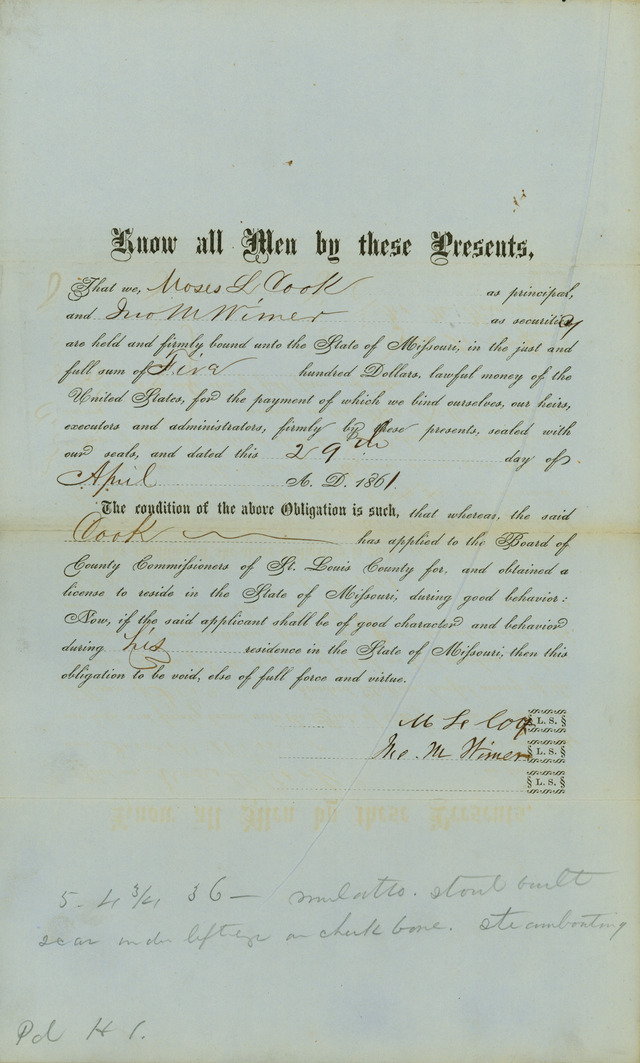 Know all Men by these Presents,
That we, Moses L Cook as principal,
and Jno M Wimer as security
are held and firmly bound unto the State of Missouri, in the just and
full sum of Five hundred Dollars, lawful money of the
United States, for the payment of which we bind ourselves, our heirs,
executors and administrators, firmly by these presents, sealed with
our seals, and dated this 29th day of
April A. D. 1861.
The condition of the above Obligation is such, that whereas, the said
Cook has applied to the Board of
County Commissioners of St. Louis County for, and obtained a
license to reside in the State of Missouri, during good behavior:
Now, if the said applicant shall be of good character and behavior
during his residence in the State of Missouri, then this
obligation to be void, else of full force and virtue.
M L L. S.
Jno. M Wimer L. S.
L. S.
5-4 3/4 36— mulatto. stout built
scar under left eye on cheek bone. steamboating
Pd